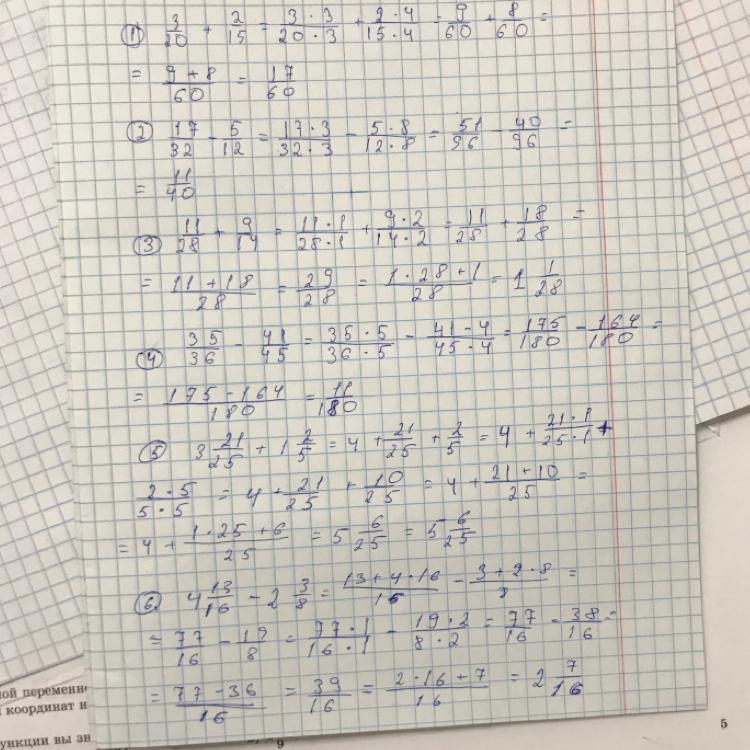 ① 3/20 + 2/15 = 3·3/20·3 + 2·4/15·4 = 9/60 + 8/60 =
= 9+8/60 = 17/60
② 17/32 - 5/12 = 17·3/32·3 - 5·8/12·8 = 51/96 - 40/96 =
= 11/40
③ 11/28 + 9/14 = 11·1/28·1 + 9·2/14·2 = 11/28 + 18/28 =
= 11+18/28 = 29/28 = 1·28+1/28 = 1 1/28
④ 35/36 - 41/45 = 35·5/36·5 - 41-4/45·4 = 175/180 - 164/180 =
= 175-164/180 = 11/180
⑤ 3 21/25 + 1 2/5 = 4 + 21/25 + 2/5 = 4 + 21·1/25·1 +
2·5/5·5 = 4 + 21/25 + 10/25 = 4 + 21+10/25 =
= 4 + 1·25+6/25 = 5 6/25 = 5 6/25
⑥ 4 13/16 - 2 3/8 = 13+4·16/16 - 3+2·8/8 =
= 77/16 - 19/8 = 77·1/16·1 - 19·2/8·2 = 77/16 - 38/16 =
= 77-36/16 = 39/16 = 2·16+7/16 = 2 7/16
ной переменн
координат и
ункции вы зн
9
5